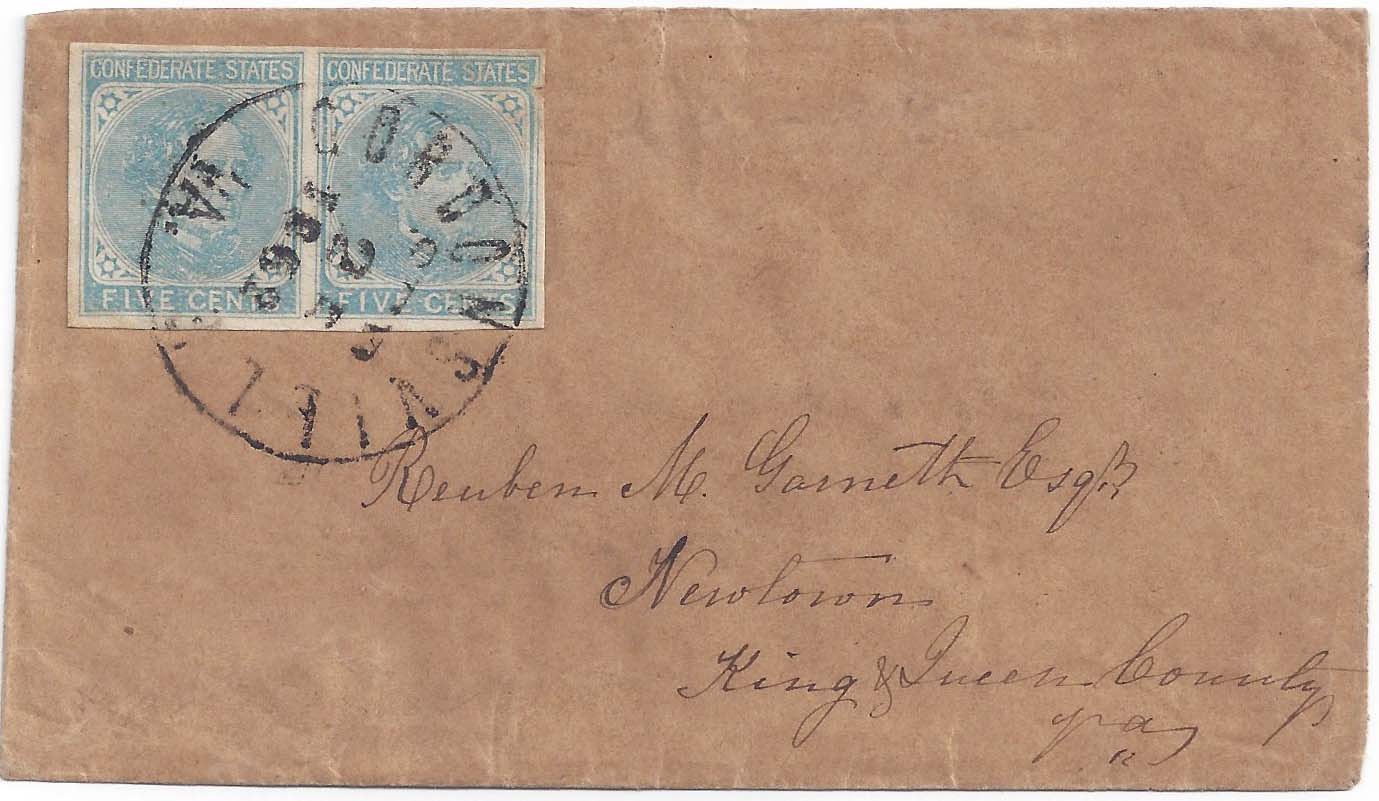 CONFEDERATE STATES CONFEDERATE STATES
FIVE CENTS FIVE CENTS
GORDONSVILLE VA.
1862
Reuben M. Garnett Esqr.
Newtown
King & Queen County
Va